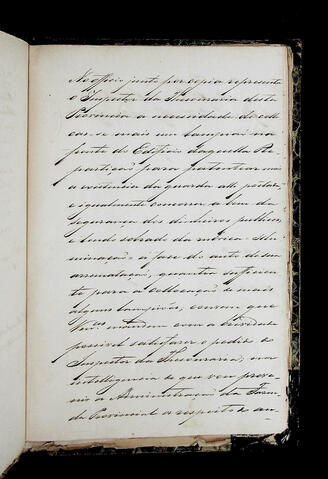 No officio junto por copia representa
o Inspector da Thesouraria desta
Provincia a necessidade de collo
car-se mais um lampeão na
frente do Edificio daquella Re
partição para patentear mais
a existencia da guarda alli postada
e igualmente concorrer a bem da
segurança dos dinheiros publicos
e tendo sobrado da
minação, a face do auto de sua
arrematação, quantia sufficiente
para a collocação de mais
alguns lampeões, convem que
Vmces mandem com a brevidade
possivel satisfazer o pedido do
Inspector da Thesouraria, na
intelligencia de que
a Administração da Fazen
da Provincial a respeito do